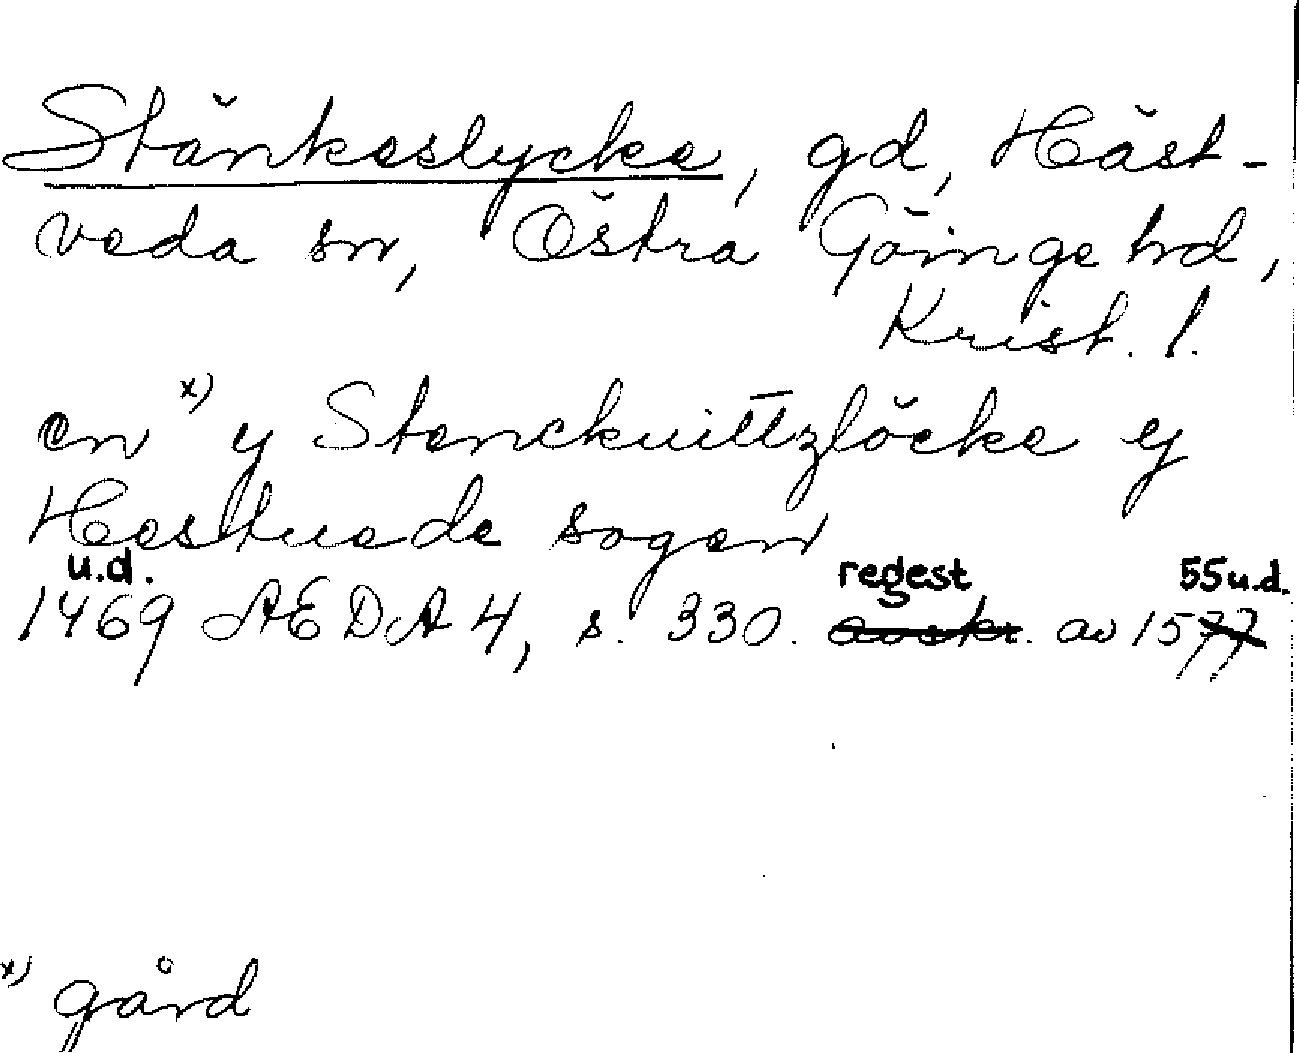 Stänkeslycke, gd, Häst-
veda sn, Östra Göinge hd,
Krist. l.
en x) y Stenckuittzlöcke y
Hestuede sogen
u.d. regest 55 u.d.
1469 ÆDA 4, s. 330. avskr. av 1577
x) gård